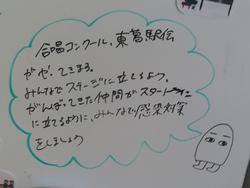 合唱コンクール、東葛駅伝
みんなでステージに立てるよう、
がんばってきた仲間がスタートライン
に立てるように、みんなで感染対策
をしましょう